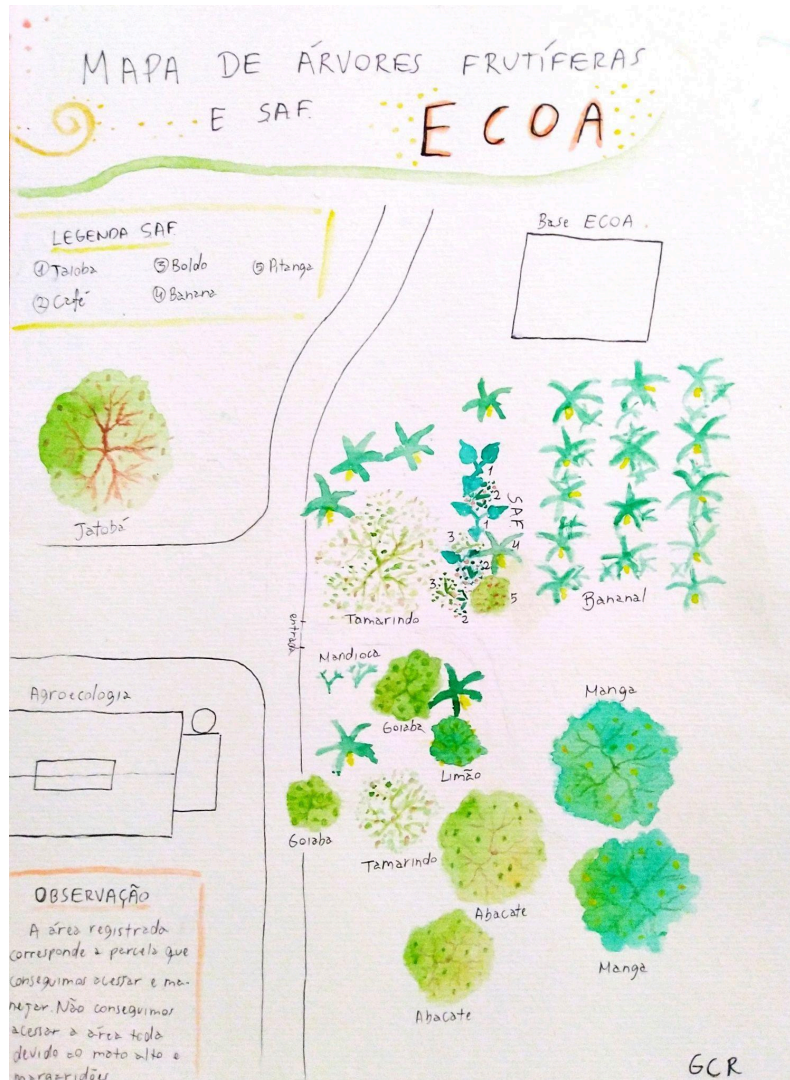 MAPA DE ÁRVORES FRUTÍFERAS
E SAF.
ECOA
LEGENDA SAF
① Taioba
② Café
③ Boldo
④ Banana
⑤ Pitanga
Base ECOA.
Jatobá
1
2
SAF
1
3
4
2
3
5
2
Tamarindo
Bananal
entrada
Mandioca
Agroecologia
Goiaba
Manga
Limão
Goiaba
Tamarindo
Abacate
Manga
Abacate
OBSERVAÇÃO
A área registrada
corresponde a parcela que
conseguimos acessar e ma-
nejar. Não conseguimos
acessar a área toda
devido ao mato alto e
margaridões
GCR